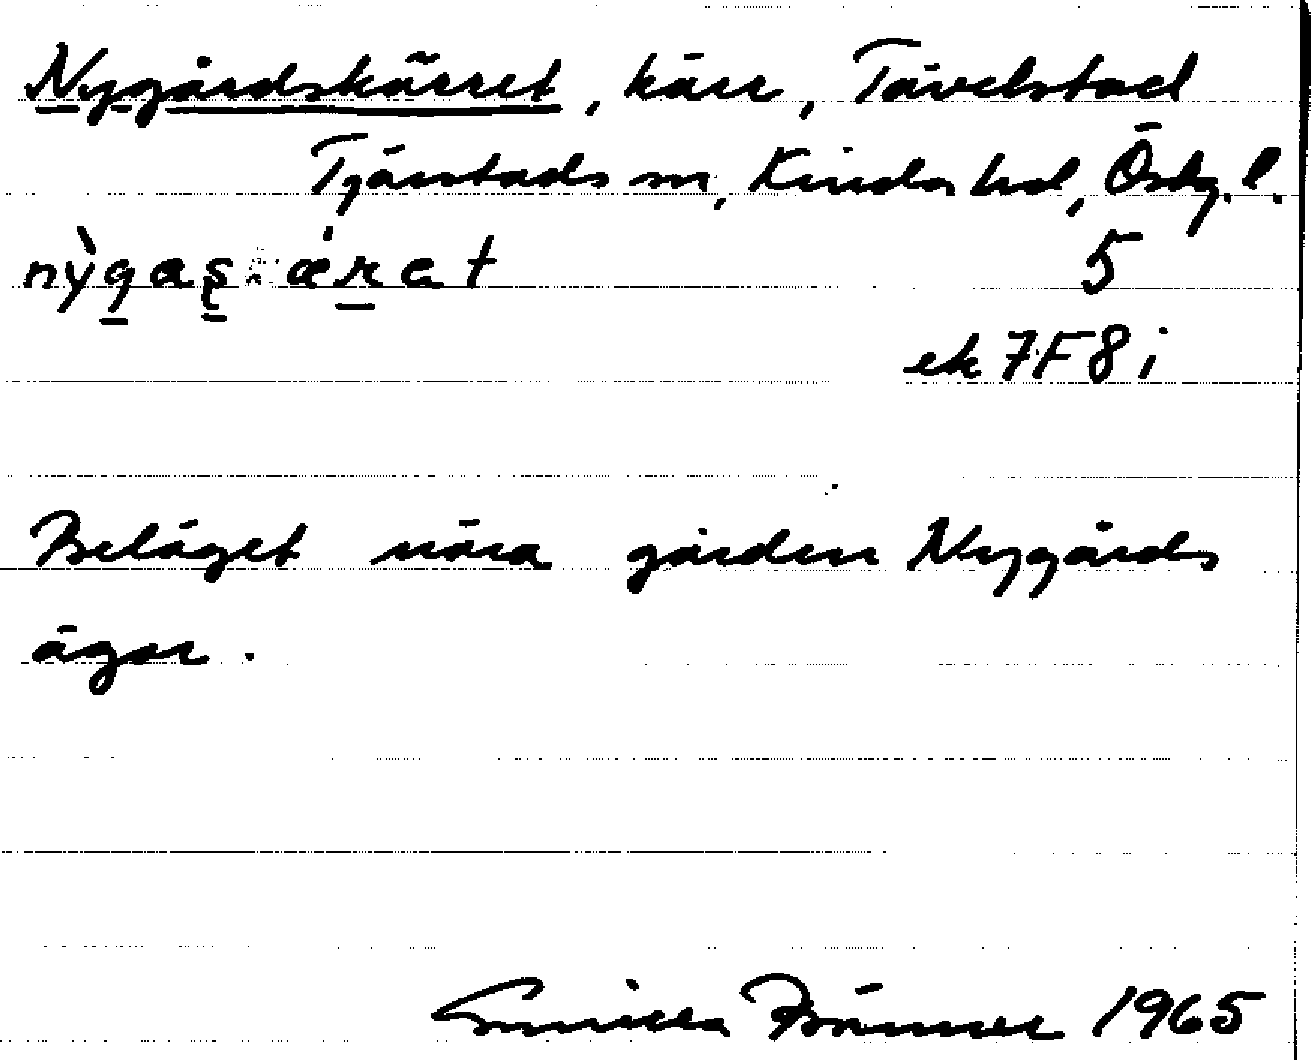 Nygårdskärret, kärr, Tävelstad
Tjärstads sn, Kinda hd, Östg. l.
5
ek 7F8i
Beläget nära gården Nygårds
ägor.
Gunilla 1965